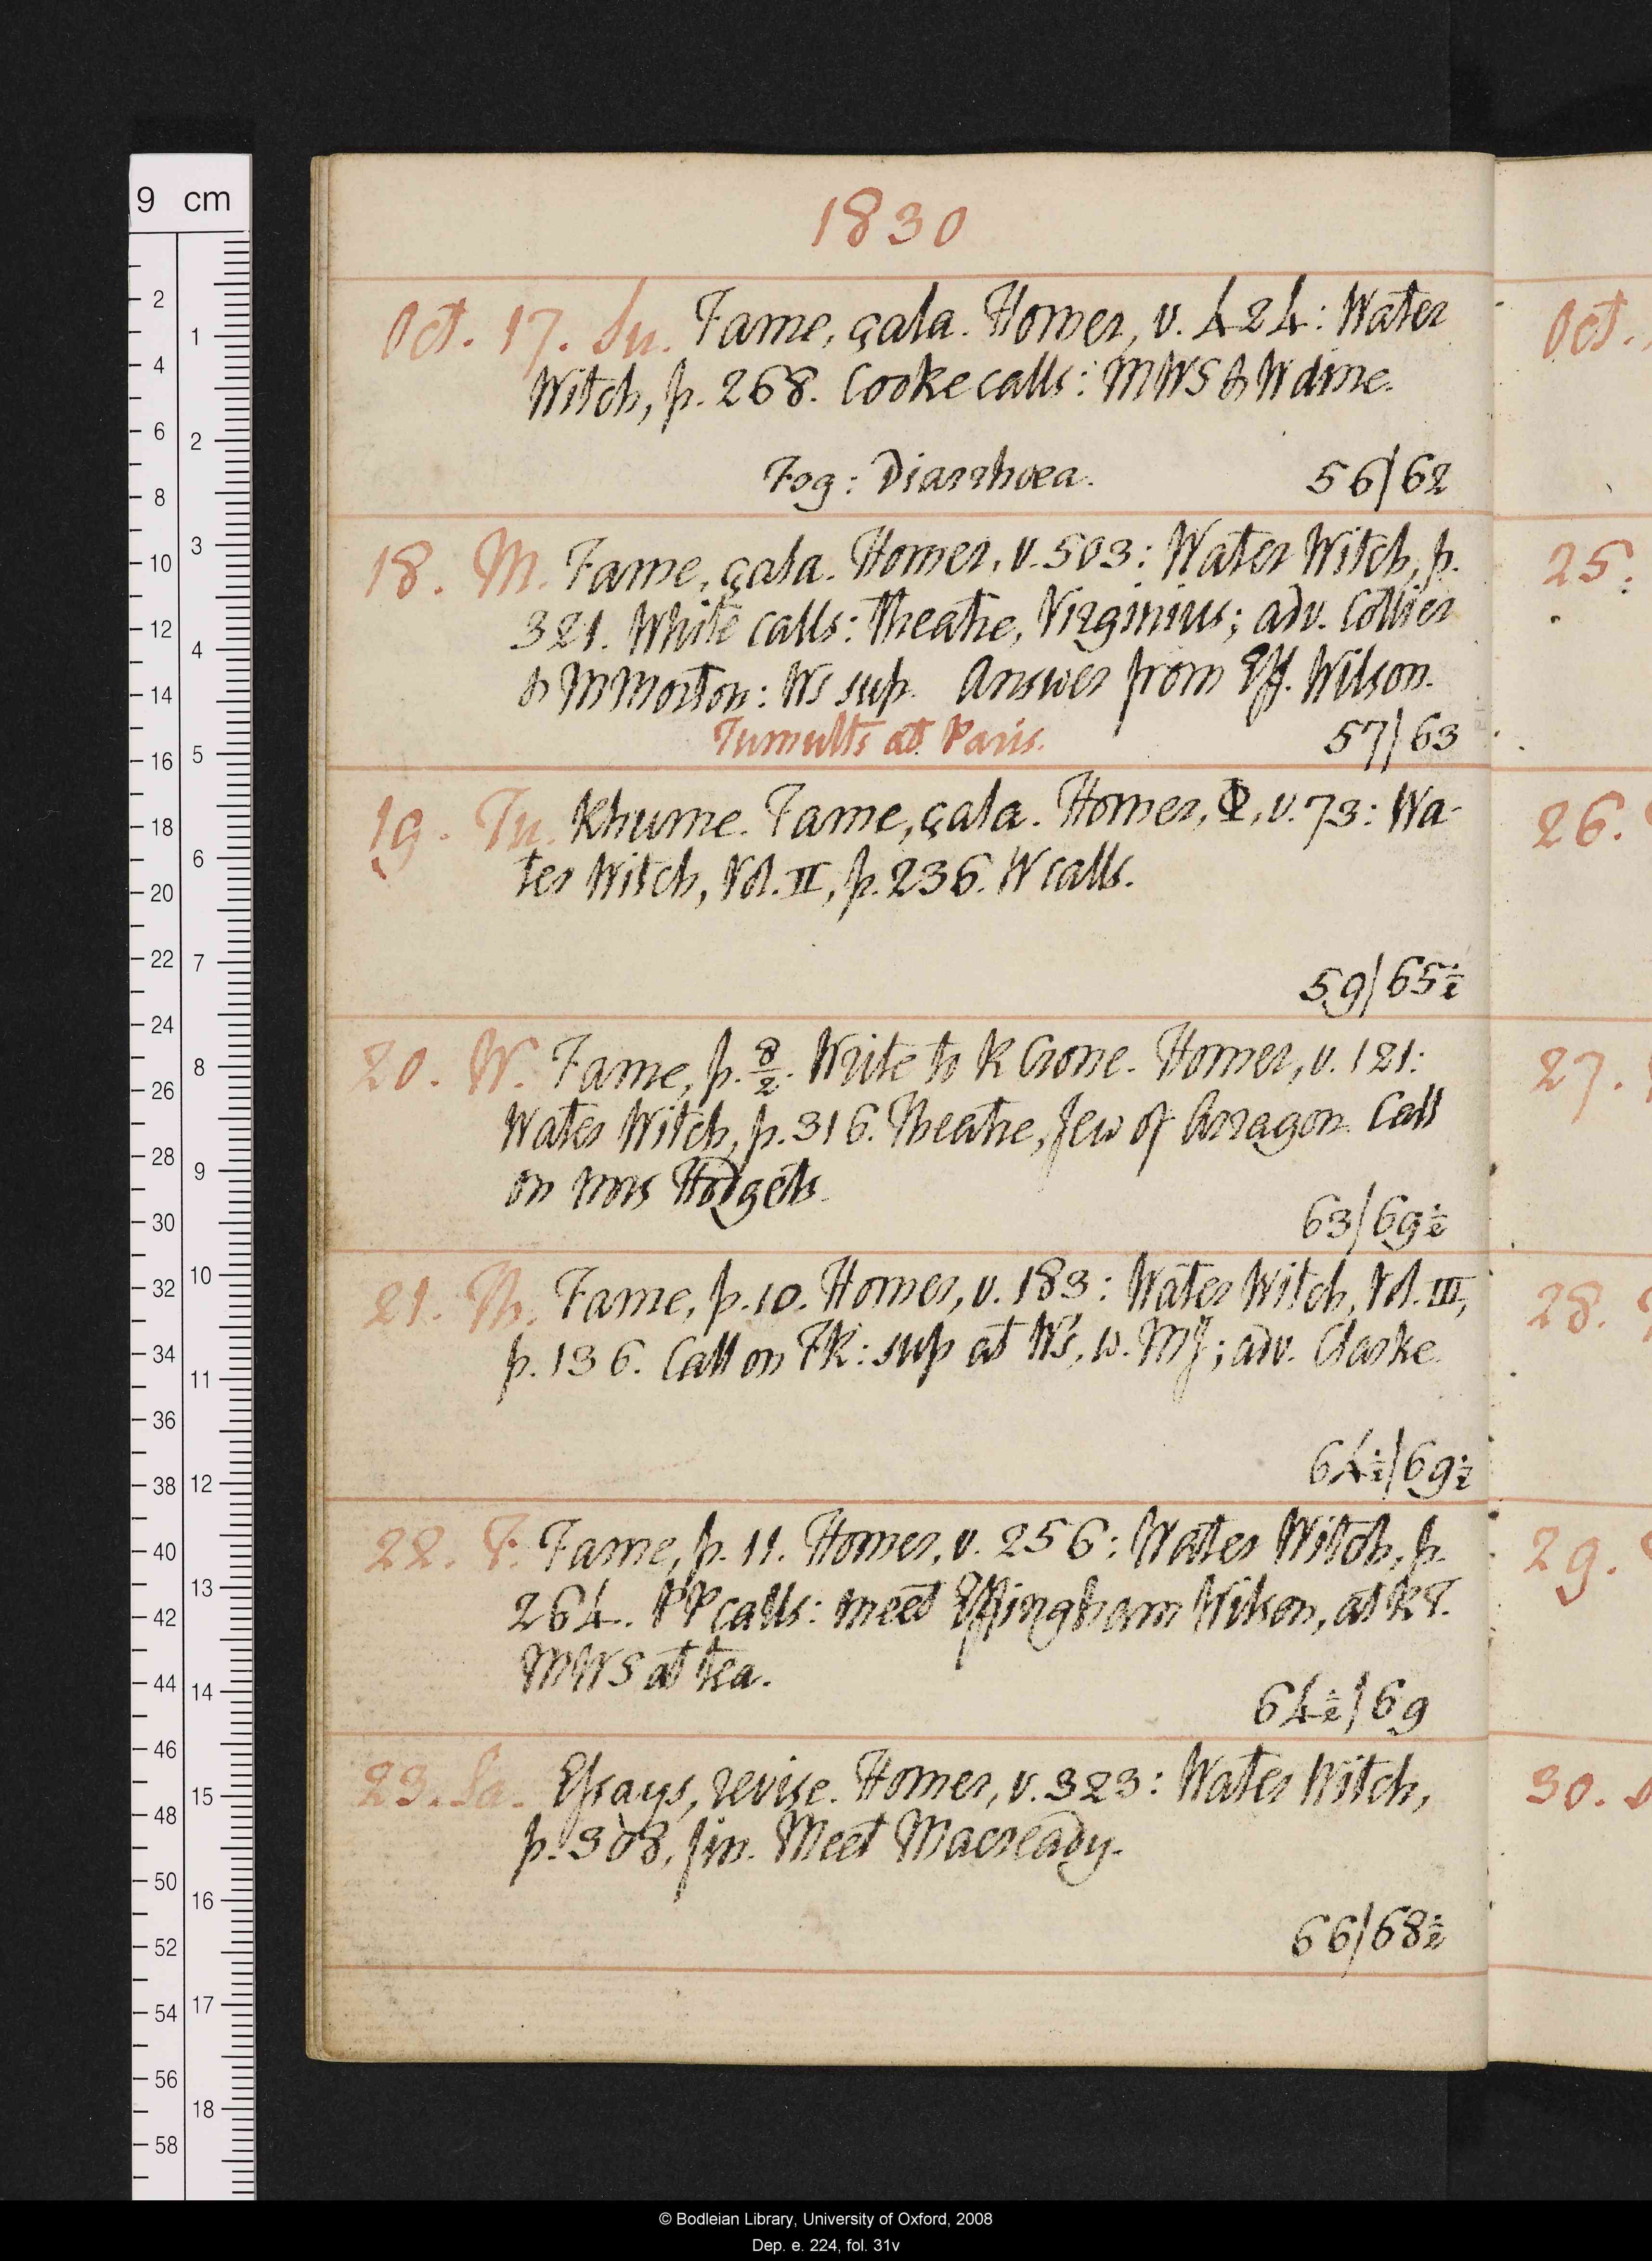 1830
Oct. 17. Su. Fame, çala. Homer, v. 424: Water
Witch, p. 268. Cooke calls: MWS & W dine.
Fog: Diarrhœa. 56/62
18. M. Fame, çala. Homer, v. 503: Water Witch, p.
321. White calls: Theatre, Virginius; adv. Collier
& M Morton: Ws sup. Answer from Eff. Wilson.
Tumults at Paris. 57/63
19. Tu. Rhume. Fame, çala. Homer, Φ, v. 73: Wa-
ter Witch, Vol. II, p. 236. W calls.
59/65½
20. W. Fame, p. 8/2. Write to R Crone. Homer, v. 121:
Water Witch, p. 316. Theatre, Jew of Arragon. Call
on Mrs Hodgets.
63/69½
21. Th. Fame, p. 10. Homer, v. 183: Water Witch, Vol. III,
p. 136. Call on FK: sup at Ws, w. MJ; adv. Clarke.
64½/69½
22. F. Fame, p. 11. Homer, v. 256: Water Witch, p.
264. PP calls: meet Effingham Wilson, at RT.
MWS at tea.
64½/69
23. Sa. Essays, revise. Homer, v. 323: Water Witch,
p. 308, fin. Meet Macready.
66/68½
Oct.
25.
26.
27.
28.
29.
30.
9 cm
2
4
6
8
10
12
14
16
18
20
22
24
26
28
30
32
34
36
38
40
42
44
46
48
50
52
54
56
58
1
2
3
4
5
6
7
8
9
10
11
12
13
14
15
16
17
18
© Bodleian Library, University of Oxford, 2008
Dep. e. 224, fol. 31v